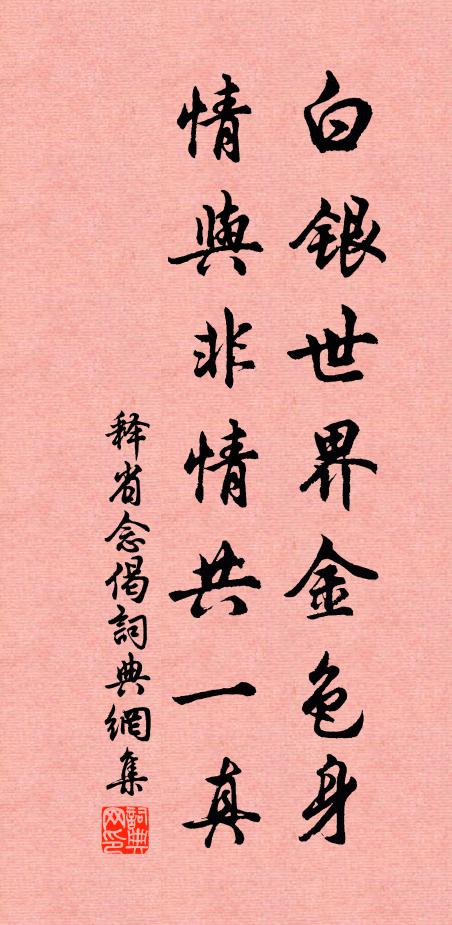 白银世界金色身
情與非情共一真
释省念偈詞典網集
詞典网印